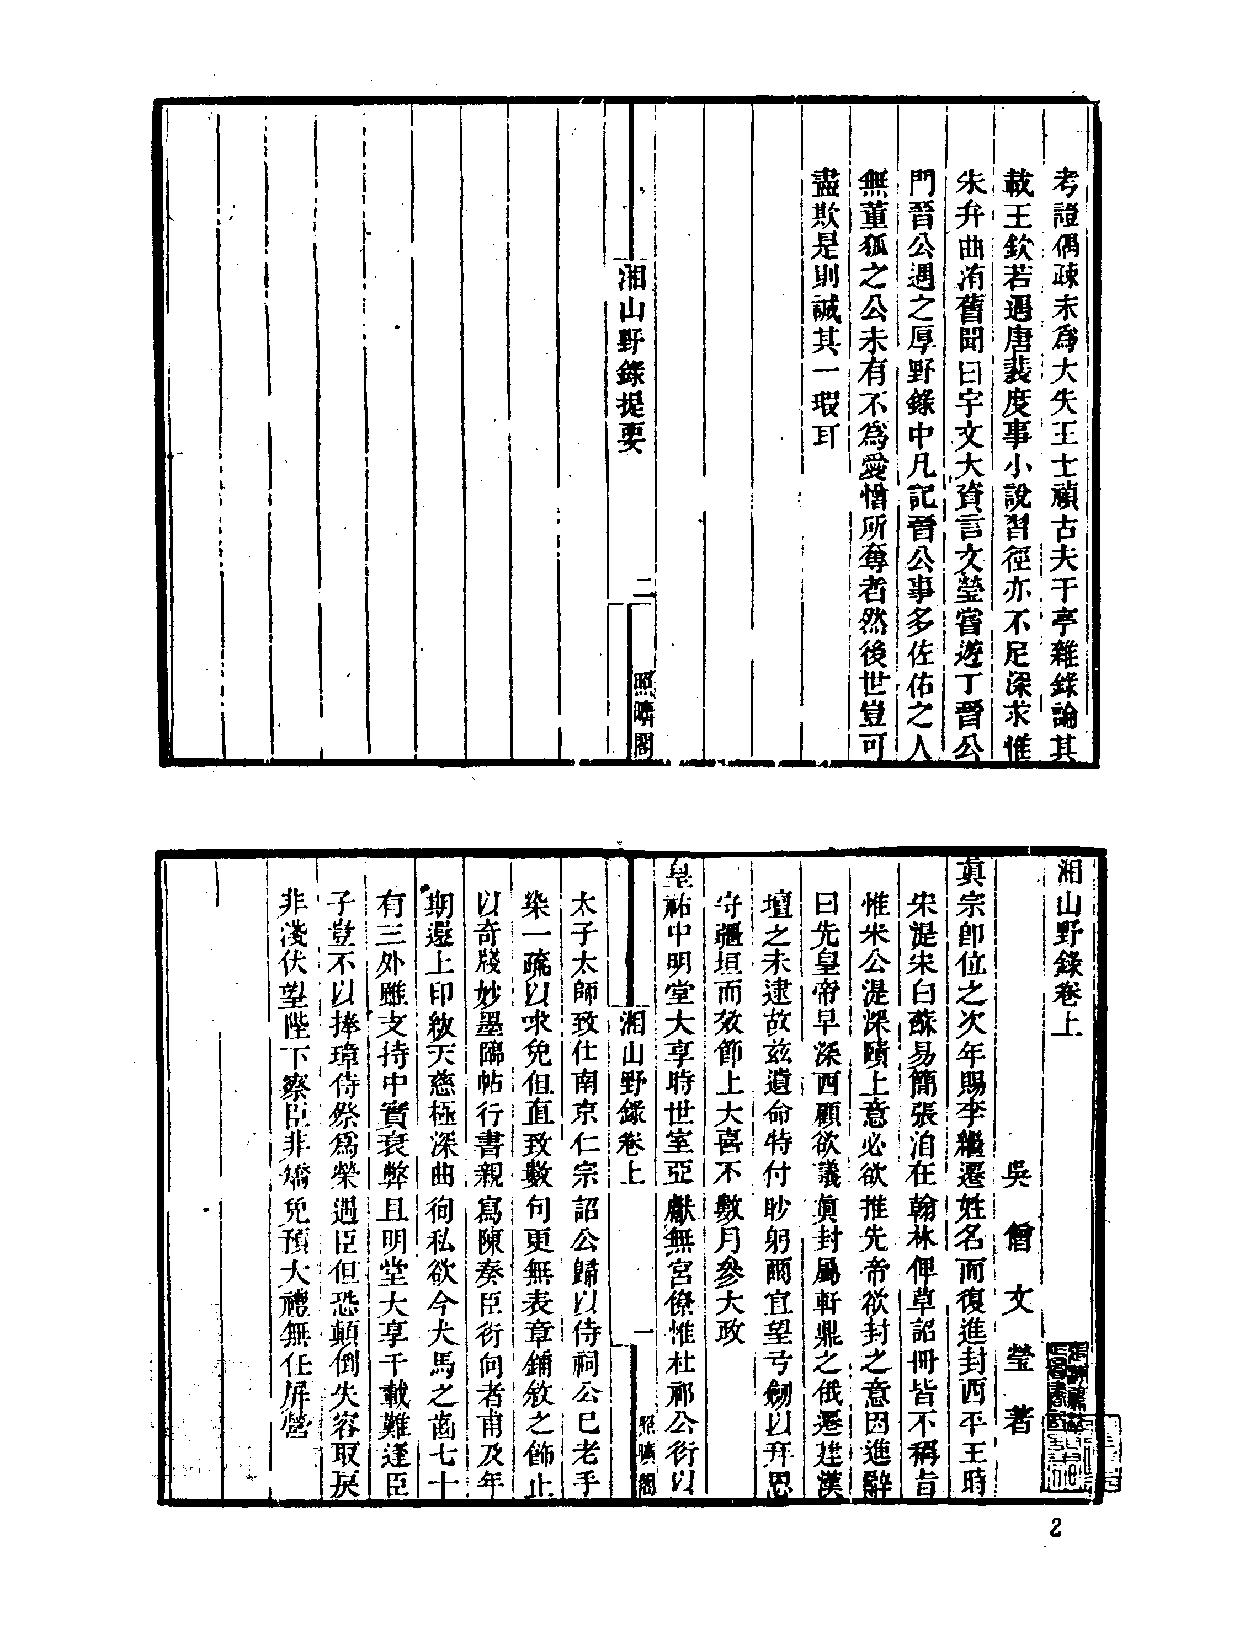 考證偶疎未爲大失王士禎古夫于亭雜錄論其
載王欽若遇唐裴度事小說習徑亦不足深求惟
朱弁曲洧舊聞曰宇文大資言文瑩嘗遊丁晉公
門晉公遇之厚野錄中凡記晉公事多佐佑之人
無董狐之公未有不爲愛憎所奪者然後世豈可
盡欺是則誠其一瑕耳
湘山野錄提要
二
照曠閣
湘山野錄卷上
吳僧文瑩著
眞宗卽位之次年賜李繼遷姓名而復進封西平王時
宋湜宋白蘇易簡張洎在翰林俾草詔冊皆不稱旨
惟宋公湜深賾上意必欲推先帝欲封之意因進辭
曰先皇帝早深西顧欲議眞封屬軒鼎之俄遷建漢
壇之未逮故茲遺命特付眇躬爾宜望弓劒以拜恩
守疆垣而效節上大喜不數月參大政
皇祐中明堂大享時世室亞獻無宮僚惟杜祁公衍以
湘山野錄卷上
一
照曠閣
太子太師致仕南京仁宗詔公歸以侍祠公已老手
染一疏以求免但直致數句更無表章鋪敘之飾止
以奇牋妙墨臨帖行書親寫陳奏臣衍向者甫及年
期還上印紱天慈極深曲徇私欲今犬馬之齒七十
有三外雖支持中實衰弊且明堂大享千載難逢臣
子豈不以捧璋侍祭爲榮遇臣但恐顛倒失容取戾
非淺伏望陛下察臣非矯免預大禮無任屏營
2